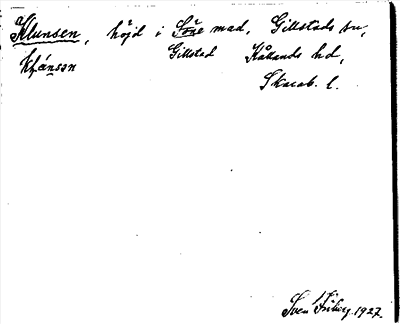 Klunsen, höjd i Söne mad, Gillstads sn,
Gillstad Kållands hd,
Skarab. l.
Sven Friberg 1927.